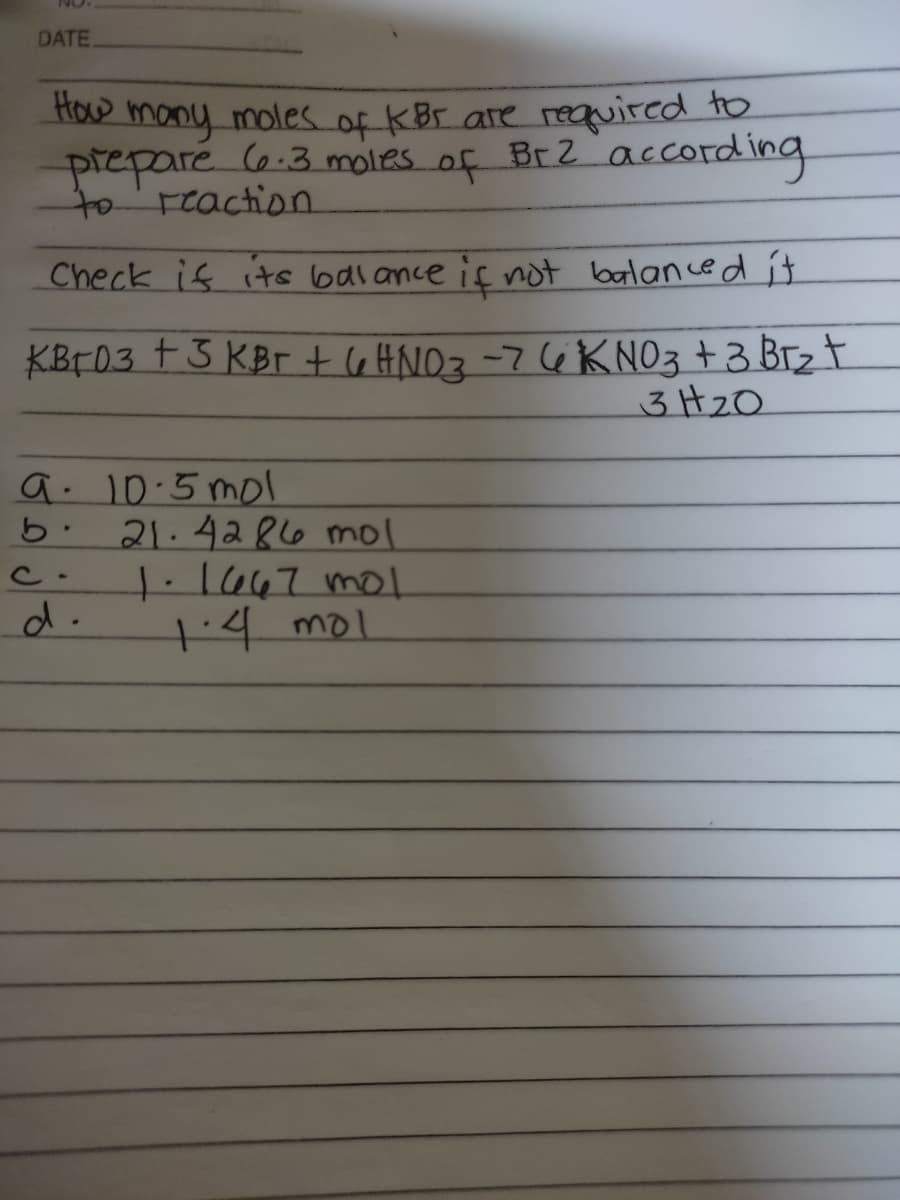 DATE
How many moles of KBr are required to
prepare 6.3 moles of Br2 according
to reaction
Check if its balance if not balanced it
KBrO3 + 5 KBr + 6 HNO3 -> 6 KNO3 + 3 Br2 +
3 H2O
a. 10.5 mol
b. 21.4286 mol
c. 1.1667 mol
d. 1.4 mol